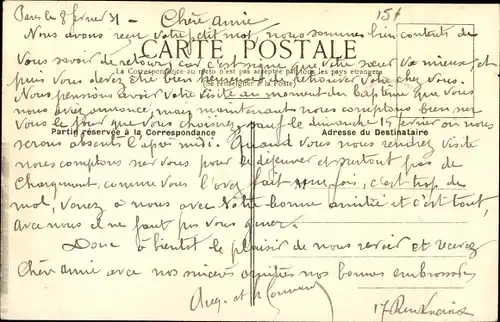 Paris le 8 février 31 - Chère amie 15f
Nous avons reçu votre petit mot, nous sommes bien contents de
CARTE POSTALE
vous savoir de retour, car c'est signe que votre sœur va mieux, et
La Correspondance au recto n'est pas acceptée par tous les pays étrangers
(Se renseigner à la Poste)
puis vous devez être bien heureuse de retrouver votre chez vous.
Nous pensions avoir votre visite au moment du Baptême que vous
nous aviez annoncé, mais maintenant nous comptons bien sur
vous le jour que vous choisirez, sauf le dimanche 15 février où nous
Partie réservée à la Correspondance
Adresse du Destinataire
serons absents l'après midi. Quand vous nous rendrez visite
nous comptons sur vous pour le déjeuner et surtout pas de
chargement, comme vous l'avez fait une fois, c'est trop de
mal, venez à nous avec votre bonne amitié et c'est tout,
avec nous il ne faut pas vous gêner.
Donc à bientôt le plaisir de vous revoir et recevez
Chère amie avec nos sincères amitiés nos bonnes embrassades
17 Rue